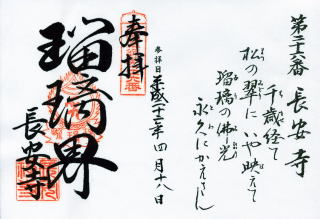 第二十六番 長安寺
千歳経て
松の翠に いや映えて
瑠璃の佛光
永久にかゞやかさん
奉拝
参拝日 平成二十二年 四月十八日
瑠璃界
長安寺